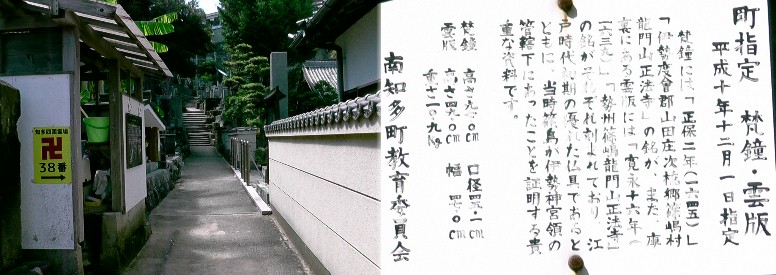 知多四国霊場
卍
38番
町指定 梵鐘・雲版
平成十年十二月一日指定
梵鐘には「正保二年(一六四五)」
「伊勢度會郡山田庄次柗郷篠嶋村
龍門山正法寺」の銘が、また、庫
裏にある雲版には「寛永十六年
(一六三九)」「勢州篠嶋龍門山正法寺」
の銘がそれぞれ刻まれており、江
戸時代初期の優れた仏具であると
ともに、当時篠島が伊勢神宮領の
管轄下にあったことを証明する貴
重な資料です。
梵鐘 高さ九七・〇cm 口径四九・一cm
雲版 高さ四九・〇cm 幅 四八・〇cm
重さ一〇・九kg
南知多町教育委員会